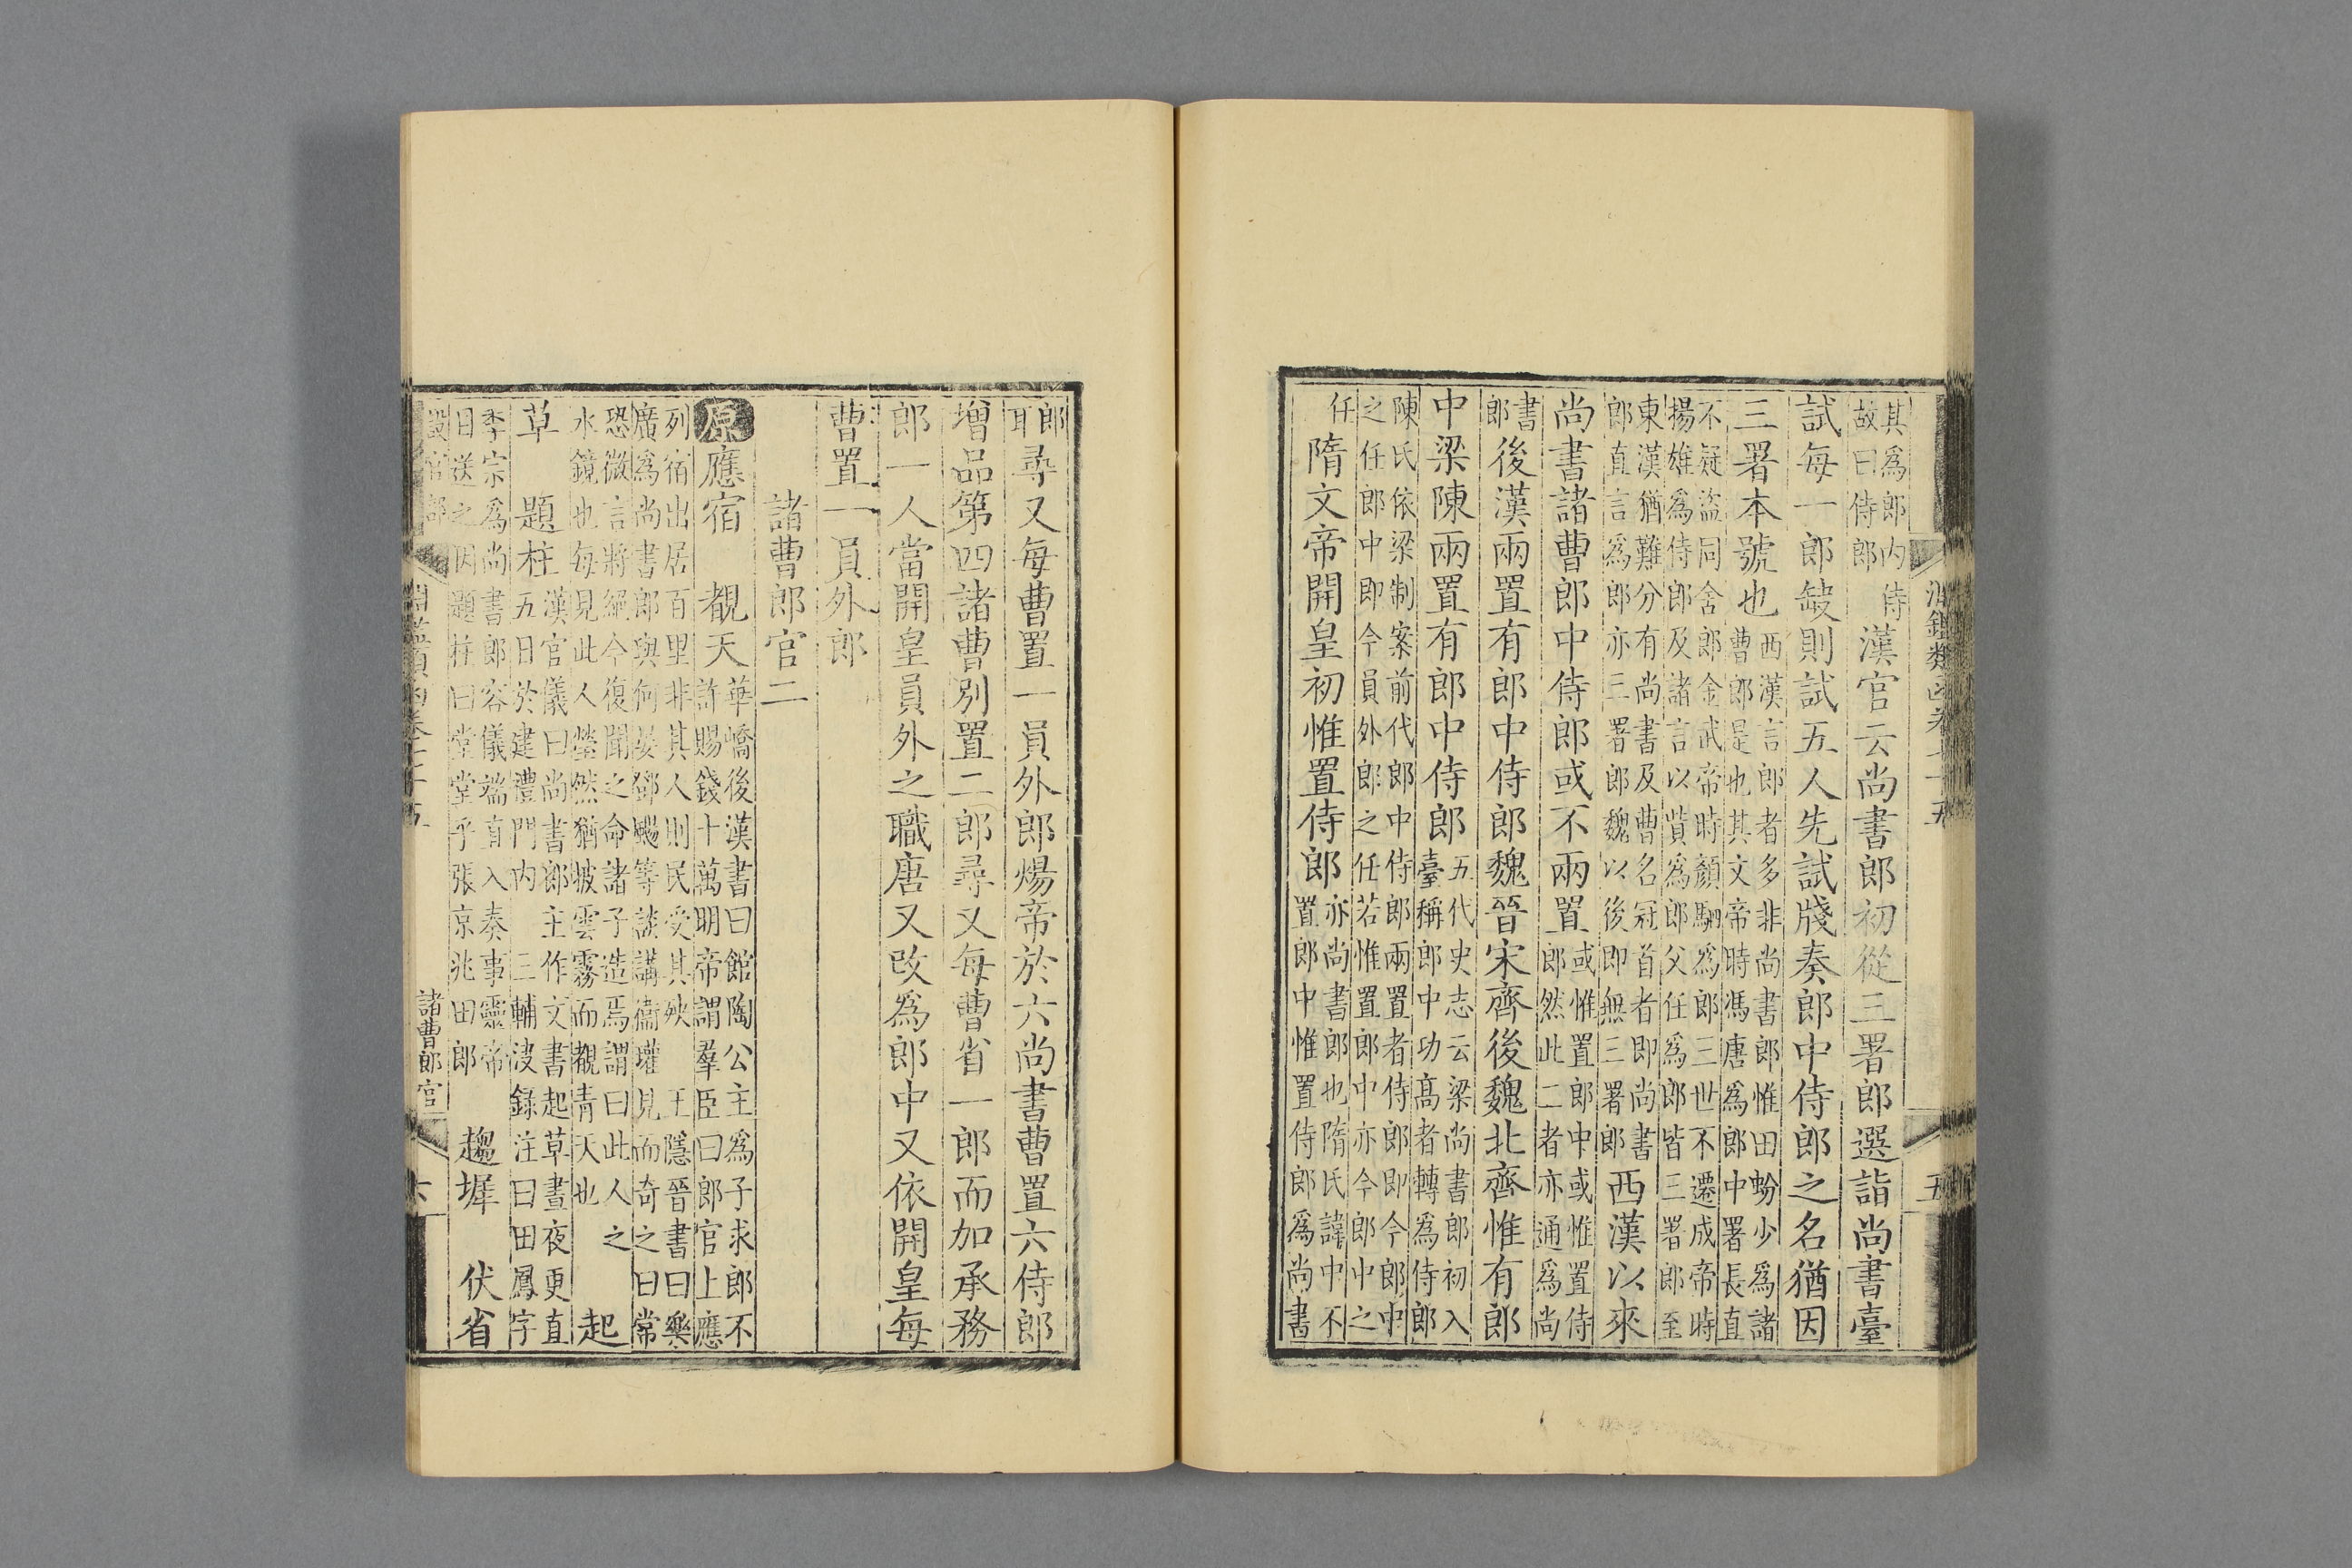 其爲郎內侍
故曰侍郎
漢官云尚書郎初從三署郎選詣尚書臺
試每一郎缺則試五人先試牋奏郎中侍郎之名猶因
三署本號也
西漢言郎者多非尚書郎惟田蚡少爲諸
曹郎是也其文帝時馮唐爲郎中署長直
不疑盜同舍郎金武帝時顏駟爲郎三世不遷成帝時
揚雄爲侍郎及諸言以貲爲郎父任爲郎皆三署郎至
東漢猶難分有尚書及曹名冠首者即尚書
郎直言爲郎亦三署郎魏以後即無三署郎
西漢以來
尚書諸曹郎中侍郎或不兩置
或惟置郎中或惟置侍
郎然此二者亦通爲尚
書
郎
後漢兩置有郎中侍郎魏晉宋齊後魏北齊惟有郎
中梁陳兩置有郎中侍郎
五代史志云梁尚書郎初入
臺稱郎中功高者轉爲侍郎
陳氏依梁制案前代郎中侍郎兩置者侍郎即今郎中
之任郎中即今員外郎之任若惟置郎中亦今郎中之
任
隋文帝開皇初惟置侍郎
亦尚書郎也隋氏諱中不
置郎中惟置侍郎爲尚書
淵鑑類函卷七十五
五
郎
耶
尋又每曹置一員外郎煬帝於六尚書曹置六侍郎
增品第四諸曹別置二郎尋又每曹省一郎而加承務
郎一人當開皇員外之職唐又改爲郎中又依開皇每
曹置一員外郎
諸曹郎官二
原應宿
觀天
華嶠後漢書曰館陶公主爲子求郎不
許賜錢十萬明帝謂羣臣曰郎官上應
列宿出居百里非其人則民受其殃
王隱晉書曰樂
廣爲尚書郎與何晏鄧颺等談講衞瓘見而奇之曰常
恐微言將絕今復聞之命諸子造焉謂曰此人之
水鏡也每見此人瑩然猶披雲霧而覩青天也
起
草
題柱
漢官儀曰尚書郎主作文書起草晝夜更直
五日於建禮門內
三輔決錄注曰田鳳字
季宗爲尚書郎容儀端直入奏事靈帝
目送之因題柱曰堂堂乎張京兆田郎
趨墀
伏省
諸曹郎官
六